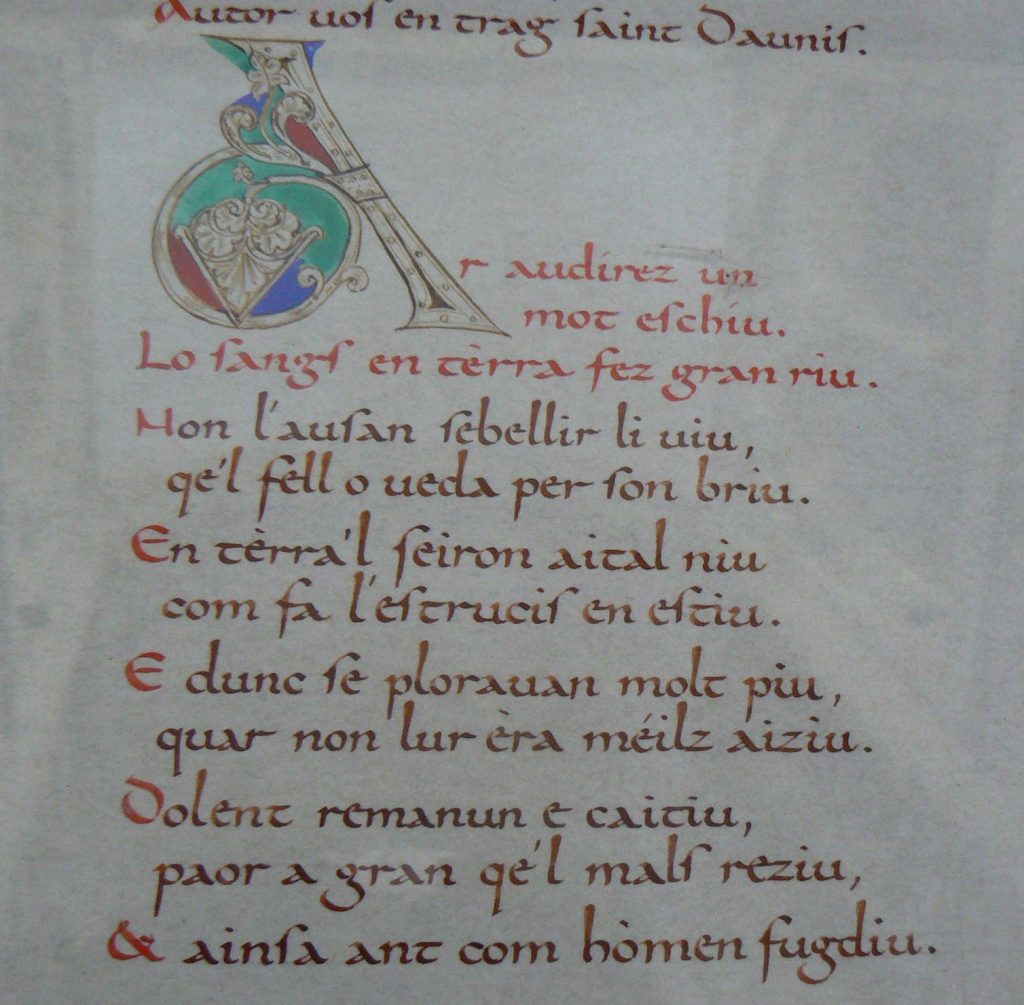 Autor vos en trag saint Daunis.
Ar audirez un
mot eschiu.
Lo sangs en tèrra fez gran riu.
Non l'ausan sebellir li uiu,
qe'l fell o ueda per son briu.
En tèrra'l seiron aital niu
com fa l'estrucis en estiu.
E dunc se plorauan molt piu,
quar non lur èra méilz aiziu.
Dolent remanun e caitiu,
paor a gran qe'l mals reziu,
& ainsa ant com hòmen fugdiu.